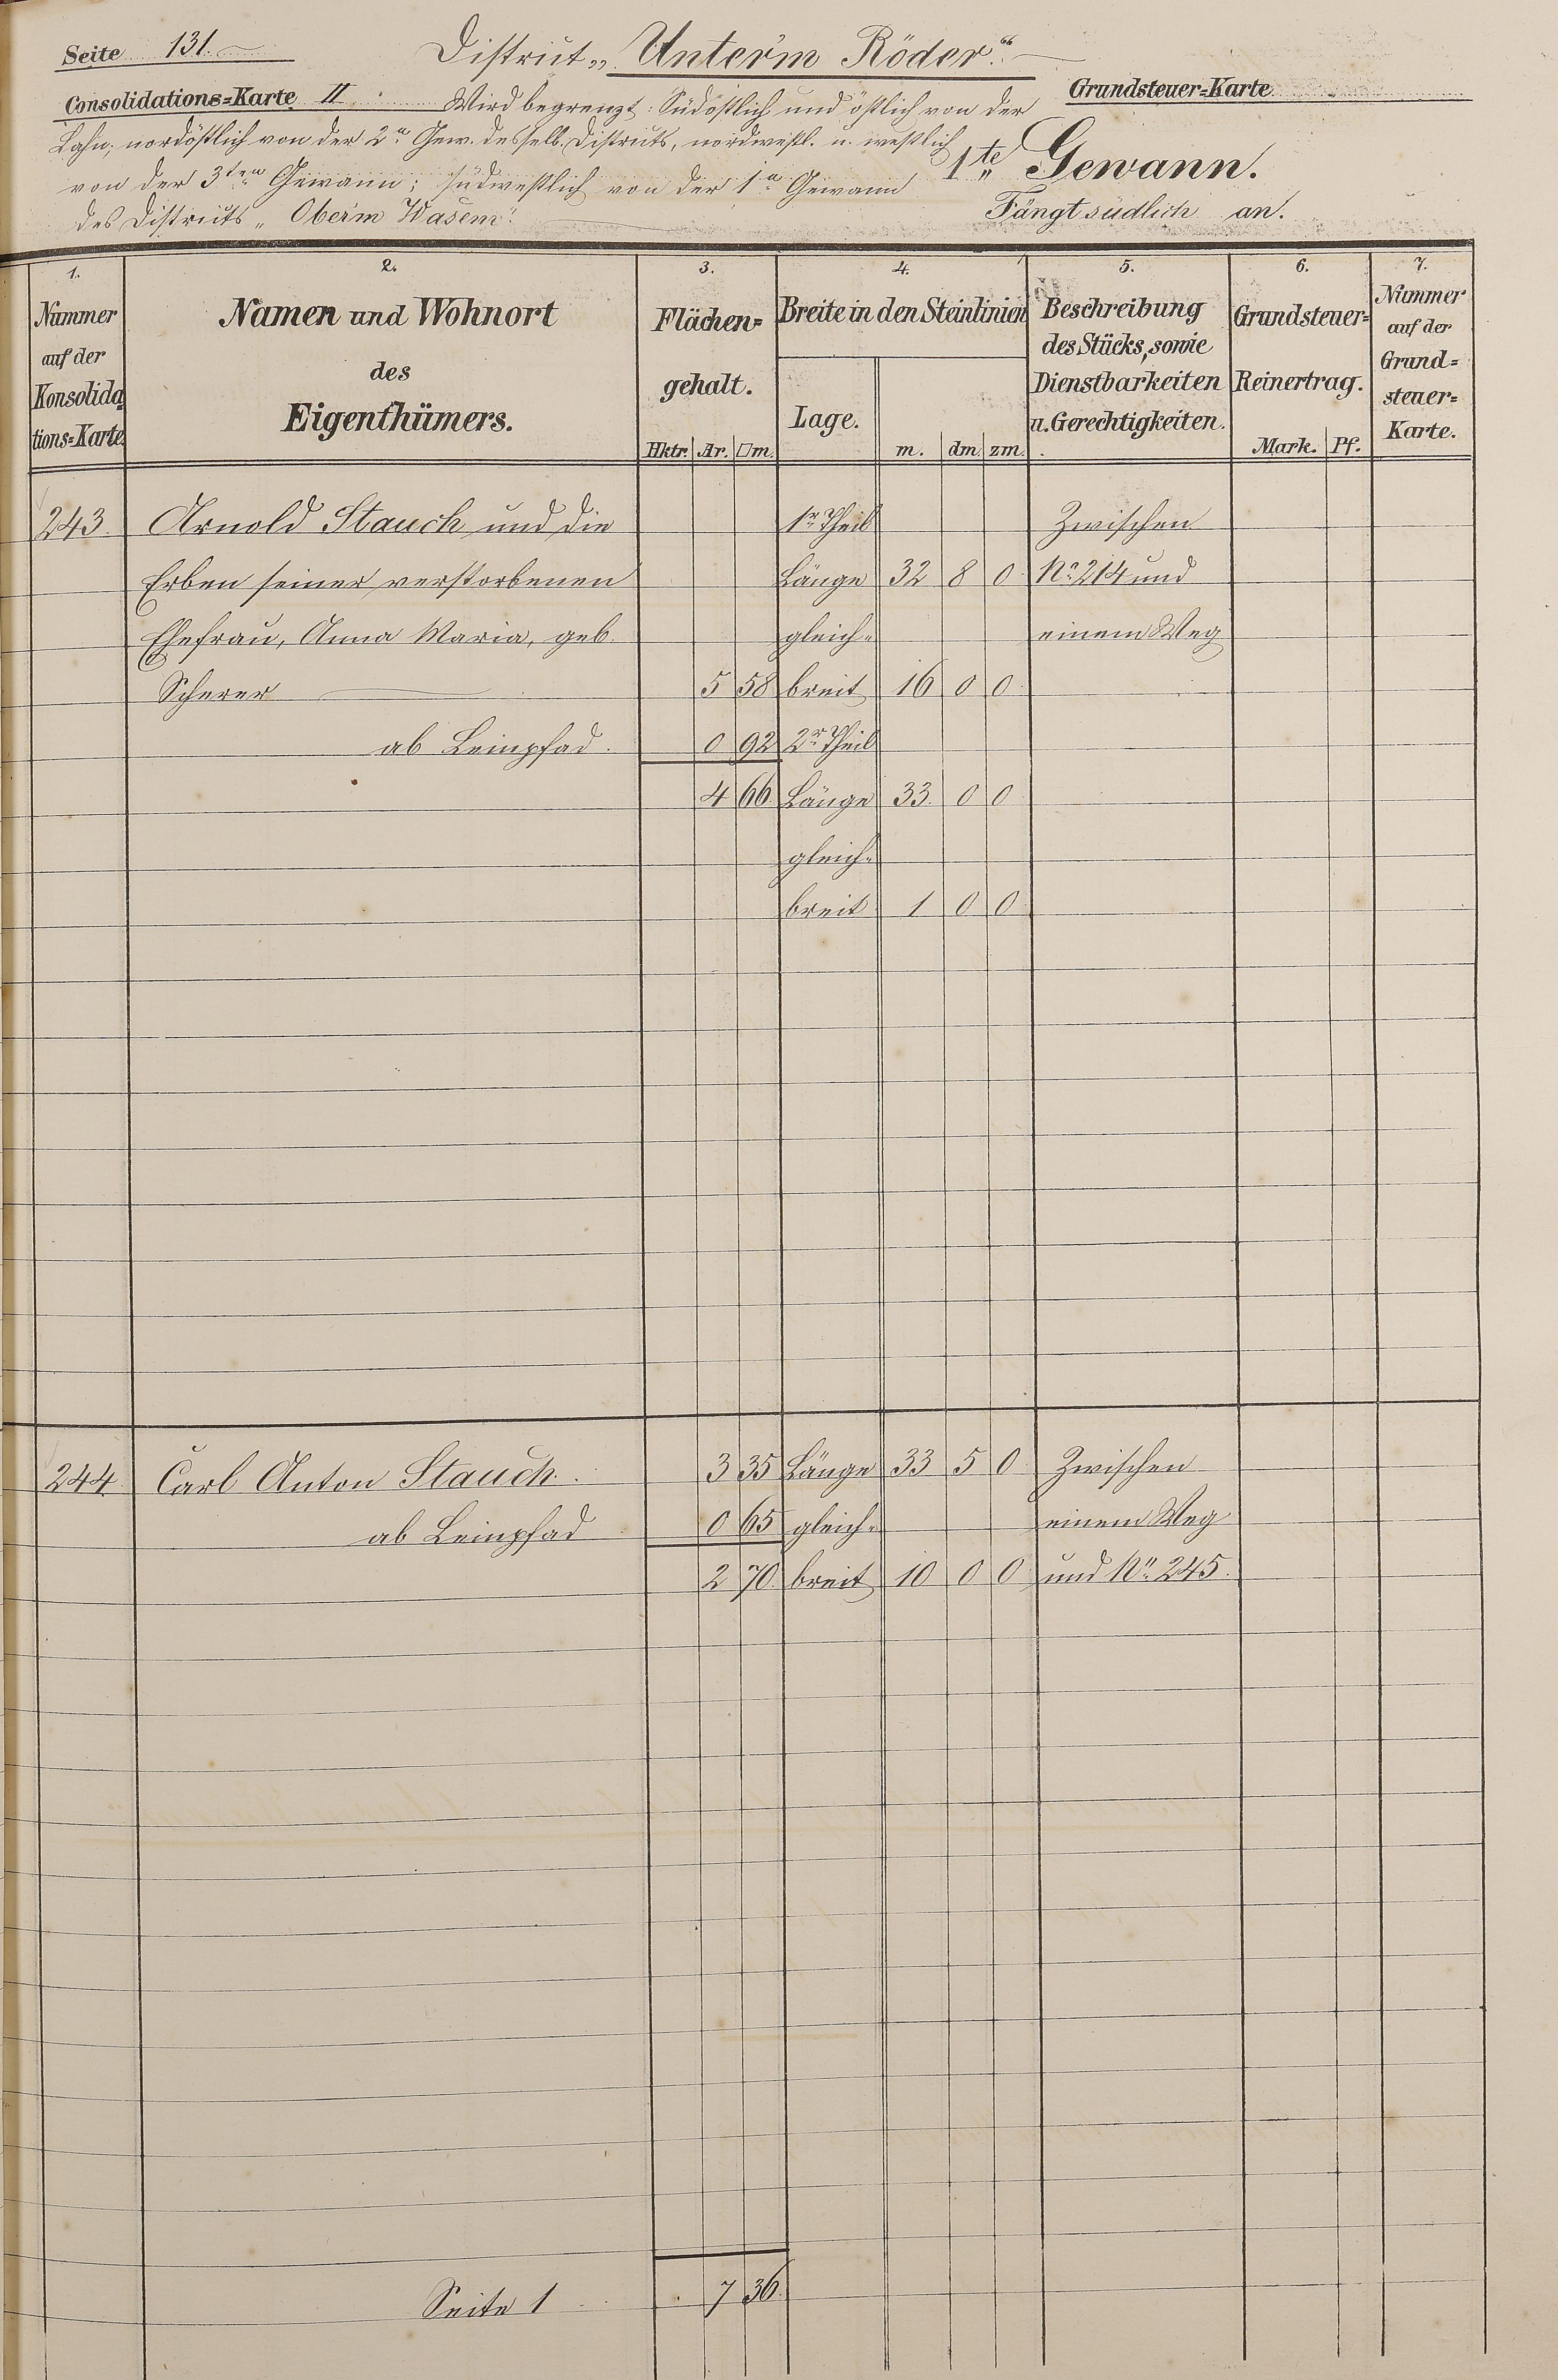 Seite 131.
District „Unter'm Röder“
Consolidations=Karte II.
Grundsteuer=Karte
Wird begrenzt: Südöstlich und östlich von der
Lahn; nordöstlich von der 2n Gew. desselb. Districts, nordwestl. u. westlich
von der 3ten Gewann; südwestlich von der 1n Gewann
des Districts „Ober'm Wasem“.
1te Gewann.
Fängt südlich an.
1. 2. 3. 4. 5. 6. 7.
Nummer auf der Konsolidations=Karte.
Namen und Wohnort des Eigenthümers.
Flächen=gehalt.
Hktr. Ar. □m.
Breite in den Steinlinien
Lage. m. dm. zm.
Beschreibung des Stücks, sowie Dienstbarkeiten u. Gerechtigkeiten.
Grundsteuer=Reinertrag.
Mark. Pf.
Nummer auf der Grund=steuer=Karte.
243. Arnold Stauch und die 1r Theil Zwischen
Erben seiner verstorbenen Länge 32 8 0 No. 214 und
Ehefrau, Anna Maria, geb. gleich= einem Weg
Scherer 5 58 breit 16 0 0
ab Leinpfad. 0 92 2r Theil
4 66 Länge 33 0 0
gleich=
breit 1 0 0
244. Carl Anton Stauch. 3 35 Länge 33 5 0 Zwischen
ab Leinpfad 0 65 gleich= einem Weg
2 70 breit 10 0 0 und No. 245.
Seite 1 7 36.